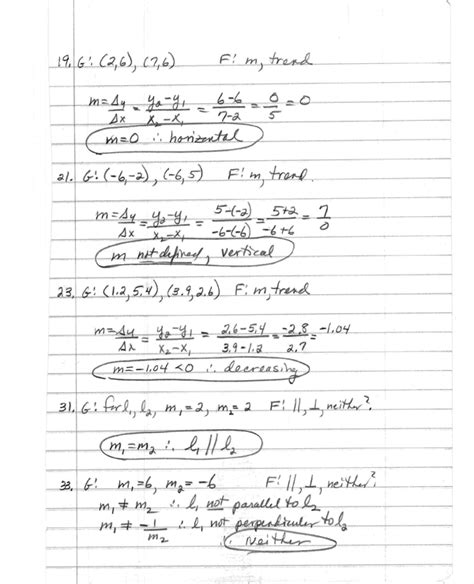 19. G: (2,6), (7,6) F: m, trend
m = Δy/Δx = y₂-y₁/x₂-x₁ = 6-6/7-2 = 0/5 = 0
m=0 ∴ horizontal
21. G: (-6,-2), (-6,5) F: m, trend.
m = Δy/Δx = y₂-y₁/x₂-x₁ = 5-(-2)/-6-(-6) = 5+2/-6+6 = 7/0
m not defined, vertical
23. G: (1.2,5.4), (3.9,2.6) F: m, trend
m = Δy/Δx = y₂-y₁/x₂-x₁ = 2.6-5.4/3.9-1.2 = -2.8/2.7 = -1.04
m = -1.04 <0 ∴ decreasing
31. G: for l₁, l₂, m₁=2, m₂=2 F: ||, ⊥, neither?
m₁=m₂ ∴ l₁ // l₂
33. G: m₁=6, m₂=-6 F: ||, ⊥, neither?
m₁ ≠ m₂ ∴ l₁ not parallel to l₂
m₁ ≠ -1/m₂ ∴ l₁ not perpendicular to l₂
∴ neither